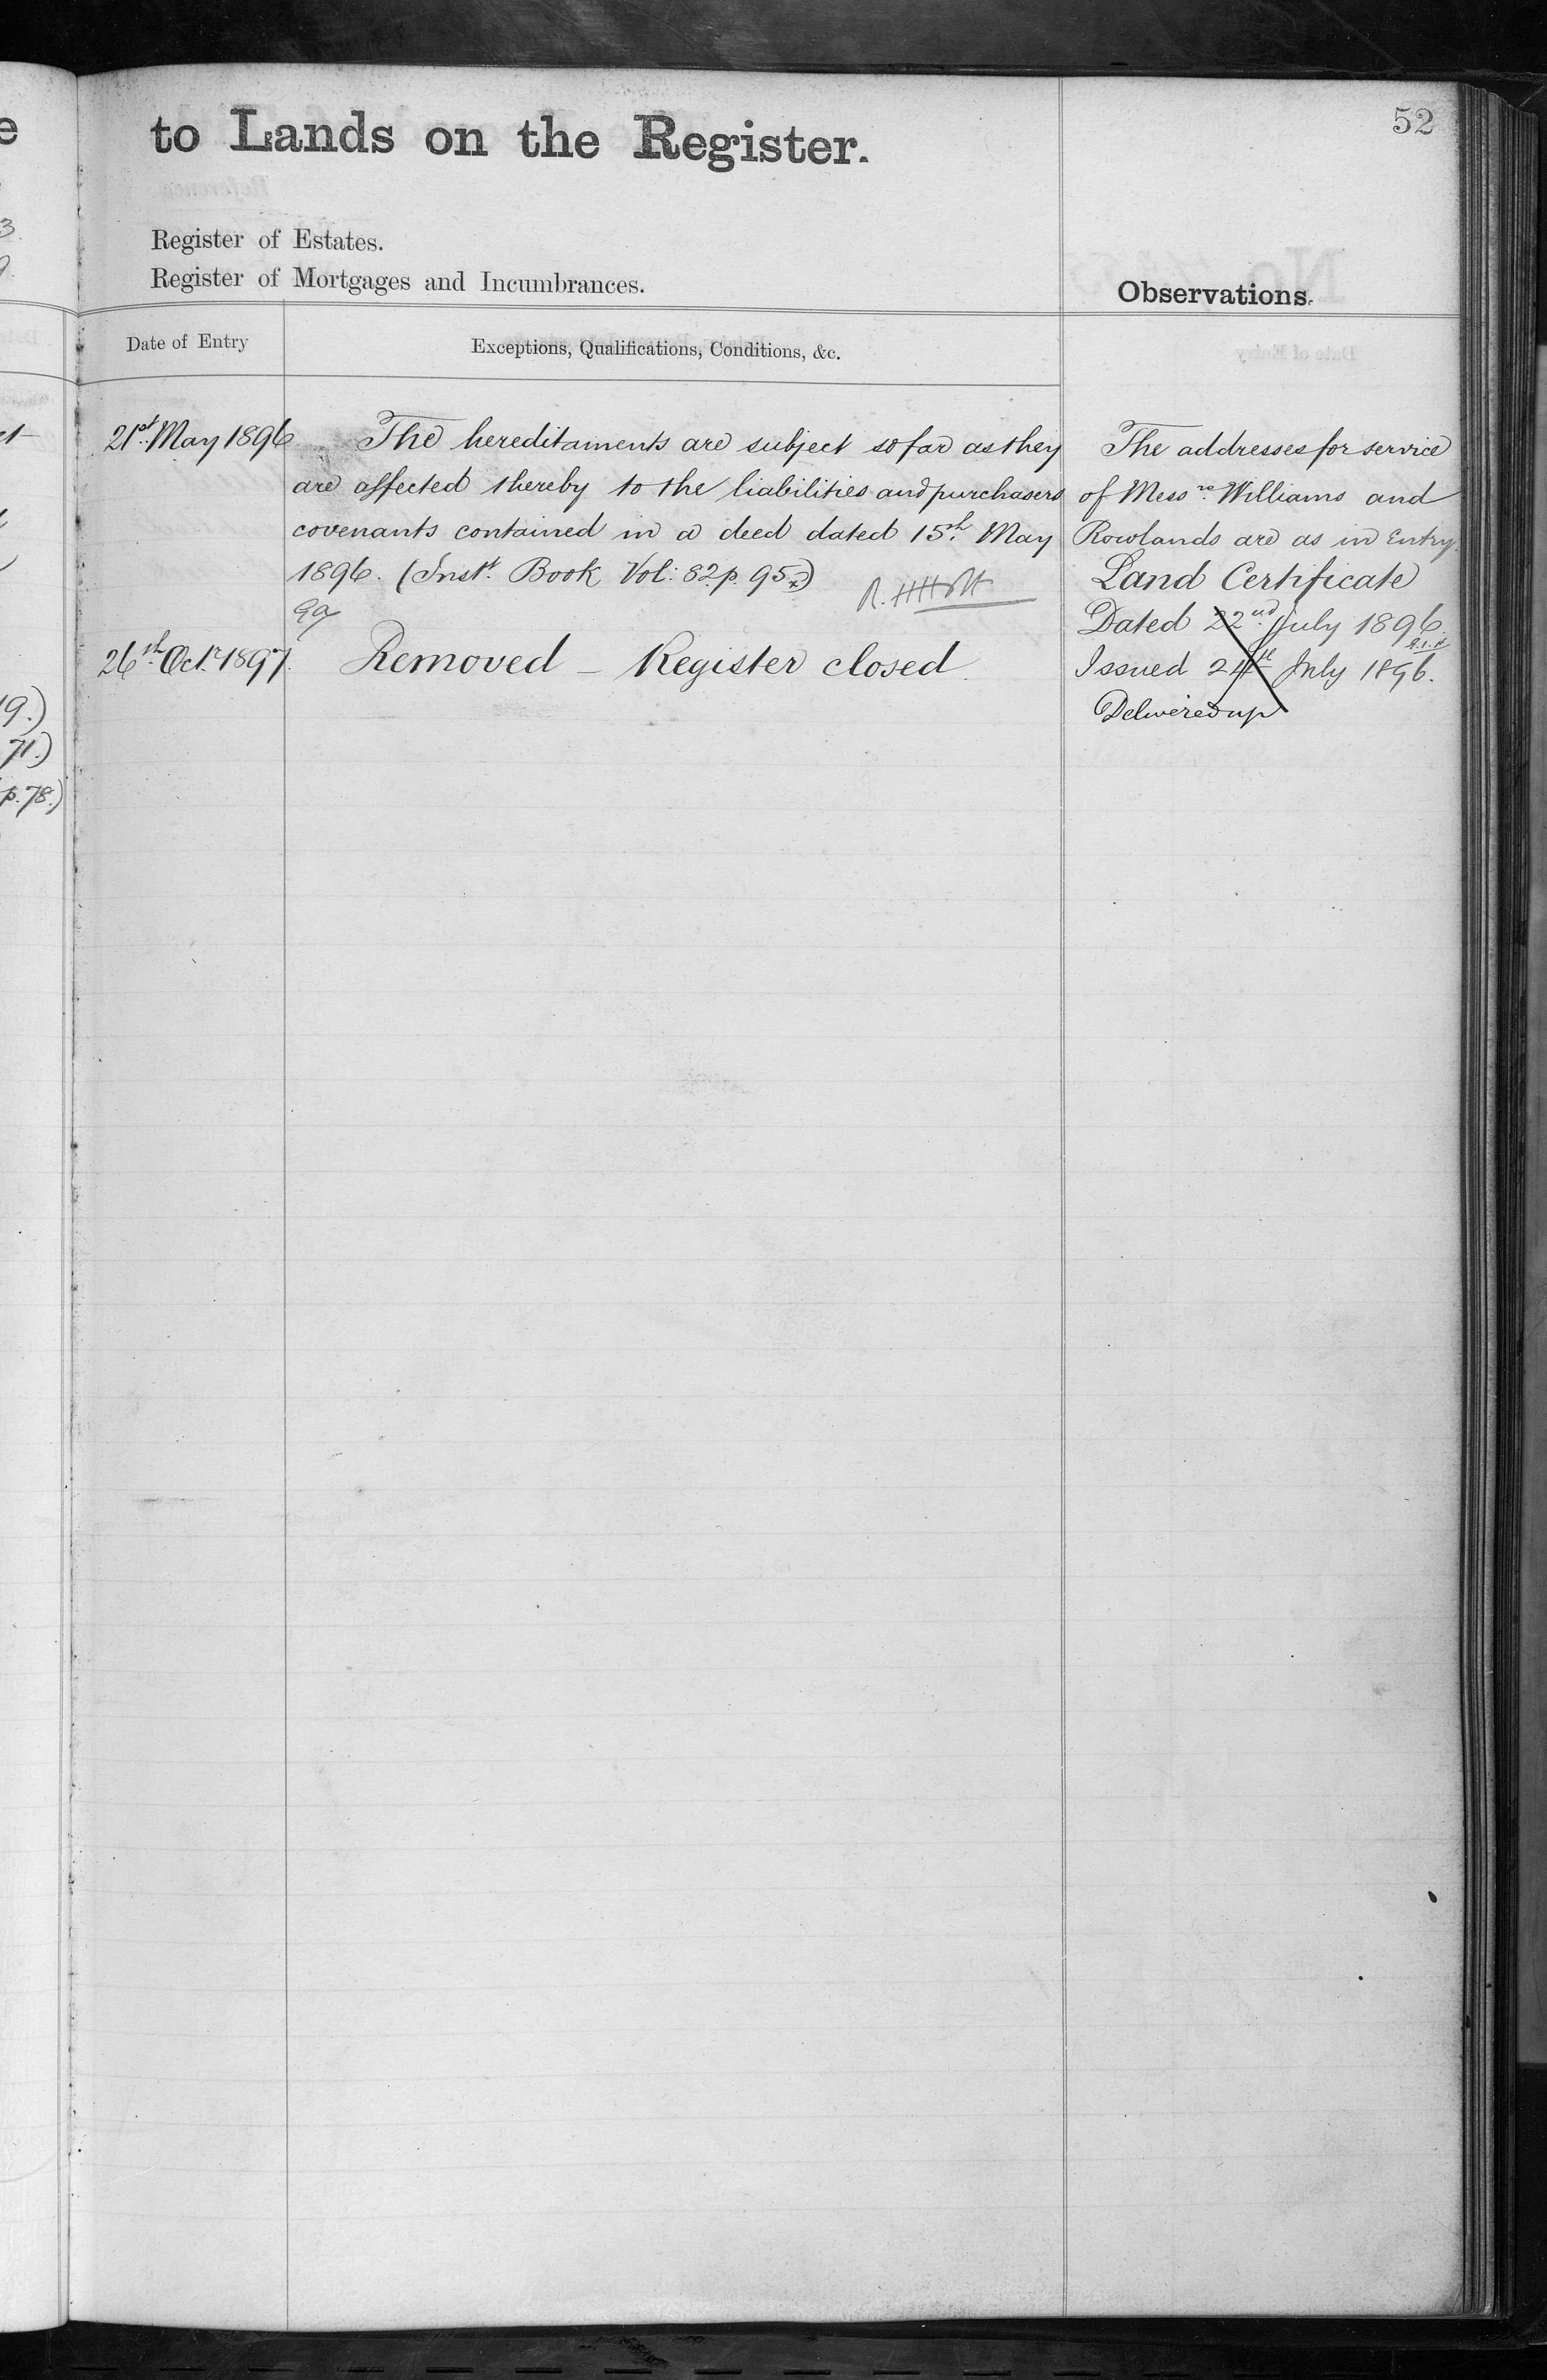 52
to Lands on the Register.
Register of Estates.
Register of Mortgages and Incumbrances.
Observations.
Date of Entry
Exceptions, Qualifications, Conditions, &c.
21st May 1896
The hereditaments are subject so far as they
are affected thereby to the liabilities and purchasers
covenants contained in a deed dated 15th May
1896. (Inst. Book Vol: 82 p. 95)
26th Oct. 1897.
Removed - Register closed
The addresses for service
of Messrs Williams and
Rowlands are as in Entry.
Land Certificate
Dated 22nd July 1896.
Issued 24th July 1896.
Delivered up
19.)
71.)
p. 78.)